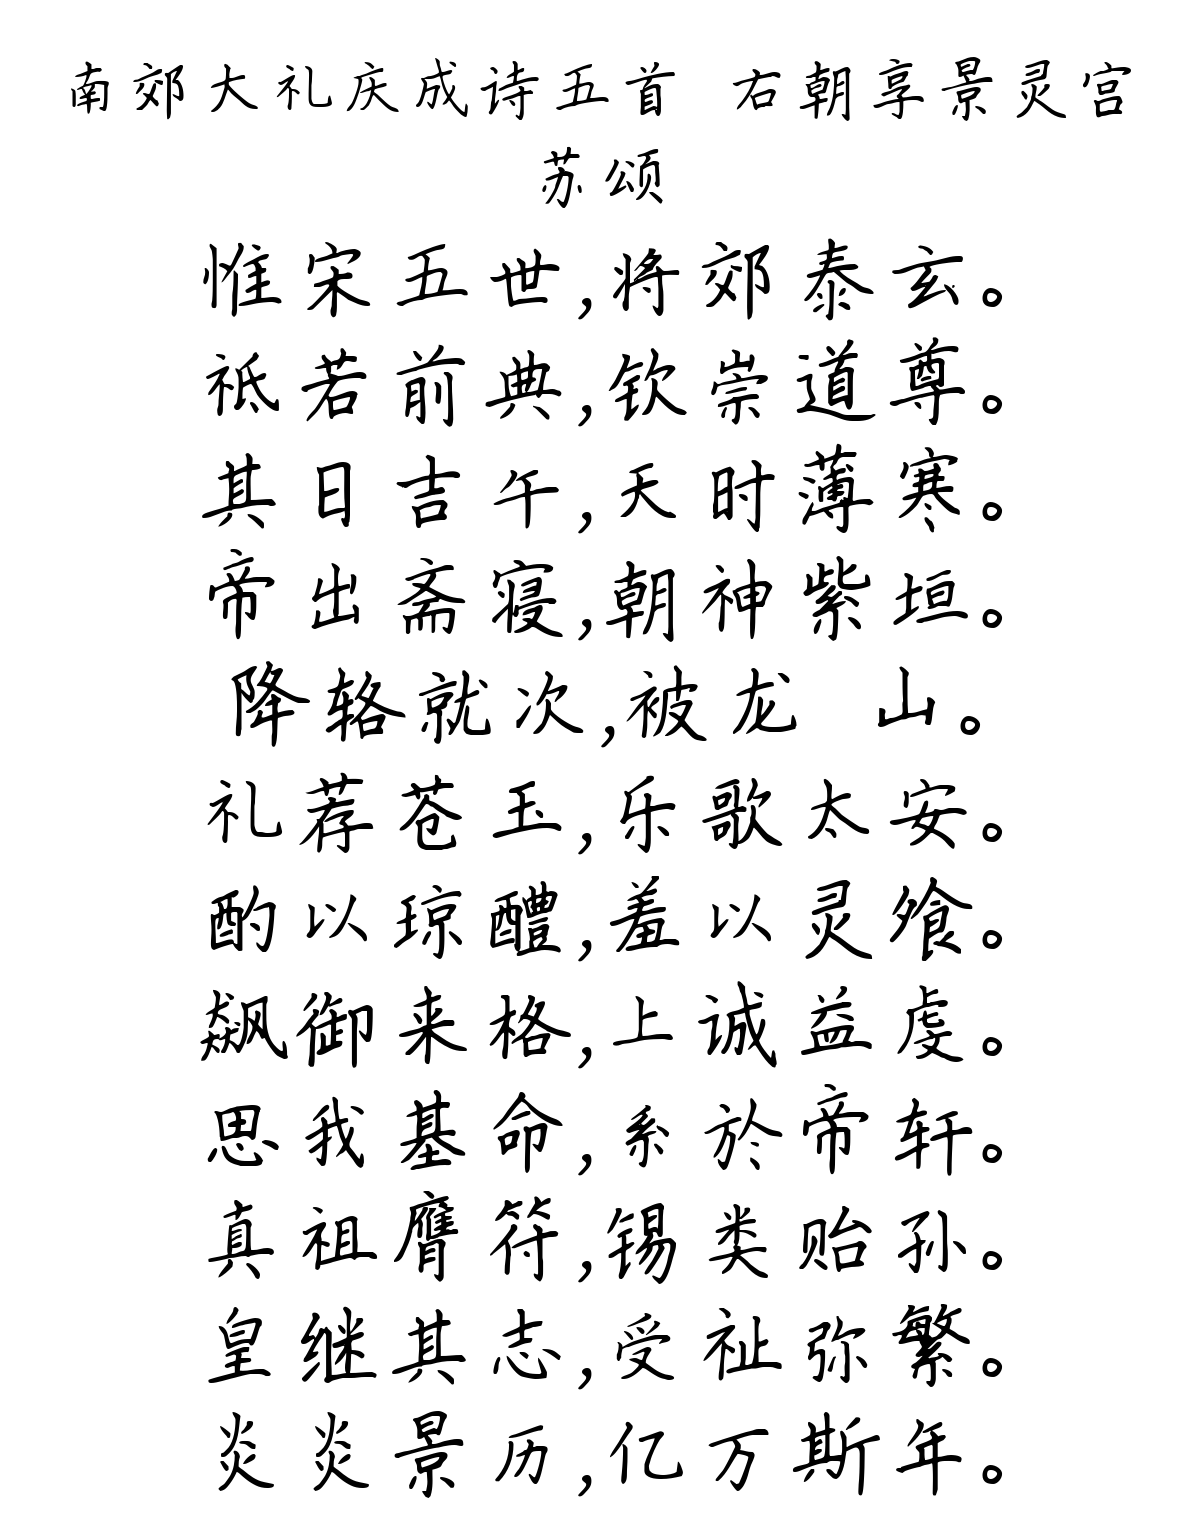 南郊大礼庆成诗五首 右朝享景灵宫
苏颂
惟宋五世,将郊泰玄。
祗若前典,钦崇道尊。
其日吉午,天时薄寒。
帝出斋寝,朝神紫垣。
降辂就次,被龙 山。
礼荐苍玉,乐歌太安。
酌以琼醴,羞以灵飧。
飙御来格,上诚益虔。
思我基命,系於帝轩。
真祖膺符,锡类贻孙。
皇继其志,受祉弥繁。
炎炎景历,亿万斯年。